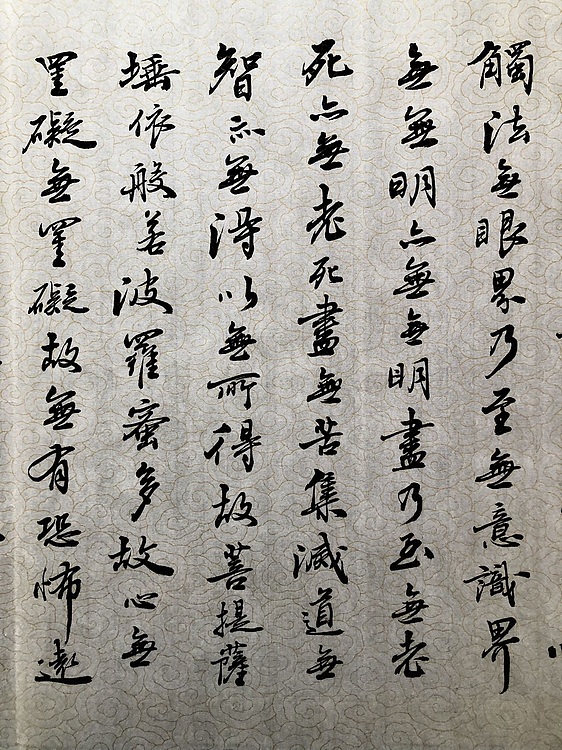 觸法無眼界乃至無意識界
無無明亦無無明盡乃至無老
死亦無老死盡無苦集滅道無
智亦無得以無所得故菩提薩
埵依般若波羅蜜多故心無
罣礙無罣礙故無有恐怖遠